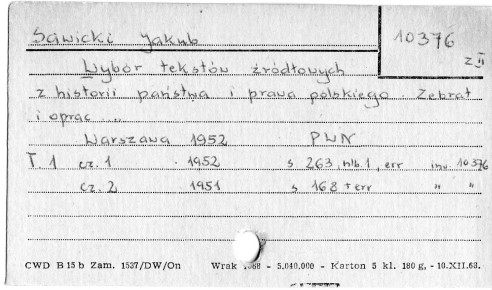 Sawicki Jakub
10376
z II
Wybór tekstów źródłowych
z historii państwa i prawa polskiego. Zebrał
i oprac. ...
Warszawa 1952 PWN
T. 1 cz. 1 1952 s 263, nlb. 1, err inw 10376
cz. 2 1951 s 168 + err " "
CWD B 15 b Zam. 1537/DW/On Wrak - 5.040.000 - Karton 5 kl. 180 g, - 10.XII.63.